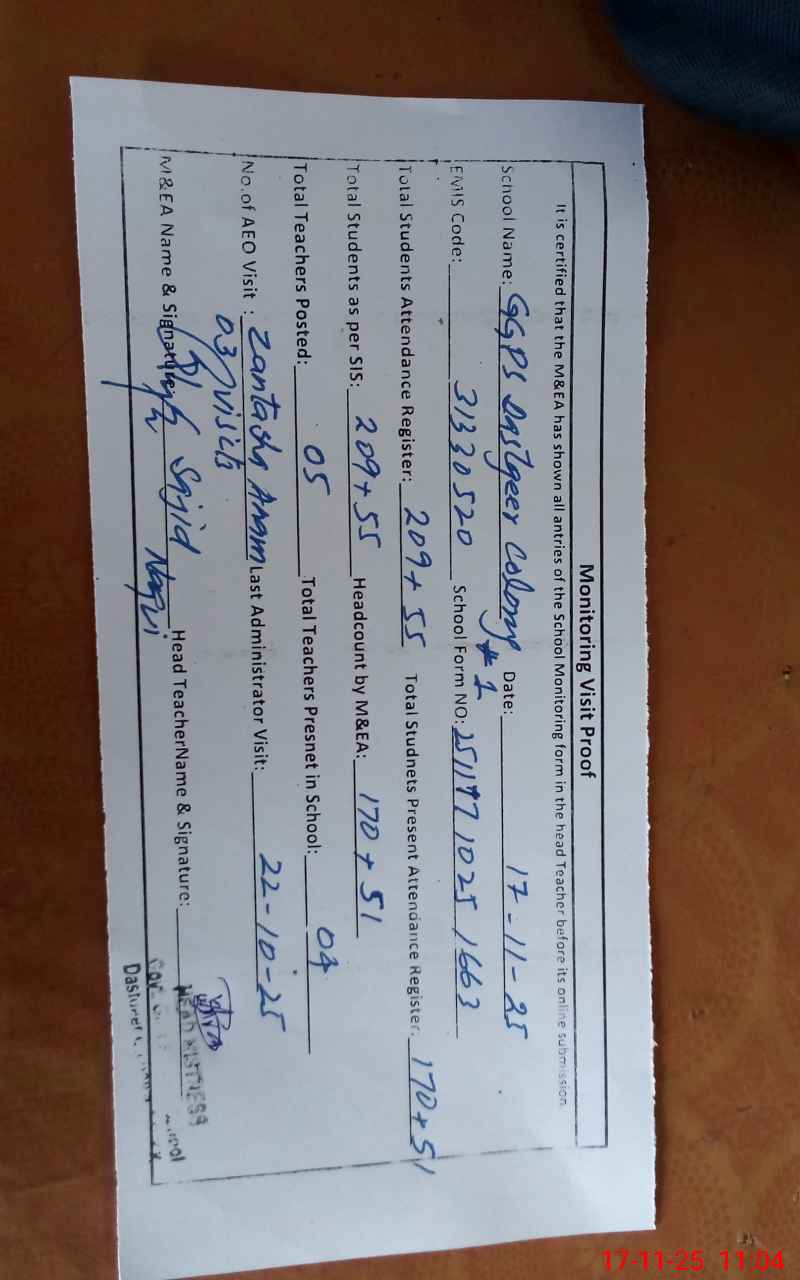 Monitoring Visit Proof
It is certified that the M&EA has shown all antries of the School Monitoring form in the head Teacher before its online submission.
School Name: GGPS Dastgeer Colony # 1 Date: 17-11-25
EMIS Code: 31330520 School Form NO: 251117 1025 1663
Total Students Attendance Register: 209+55 Total Studnets Present Attendance Register: 170+51
Total Students as per SIS: 209+55 Headcount by M&EA: 170+51
Total Teachers Posted: 05 Total Teachers Presnet in School: 04
No.of AEO Visit : Zantasha Anam Last Administrator Visit: 22-10-25
03 visits
M&EA Name & Signature: Sajid Naqvi Head TeacherName & Signature:
HEAD MISTRESS
17-11-25 11:04